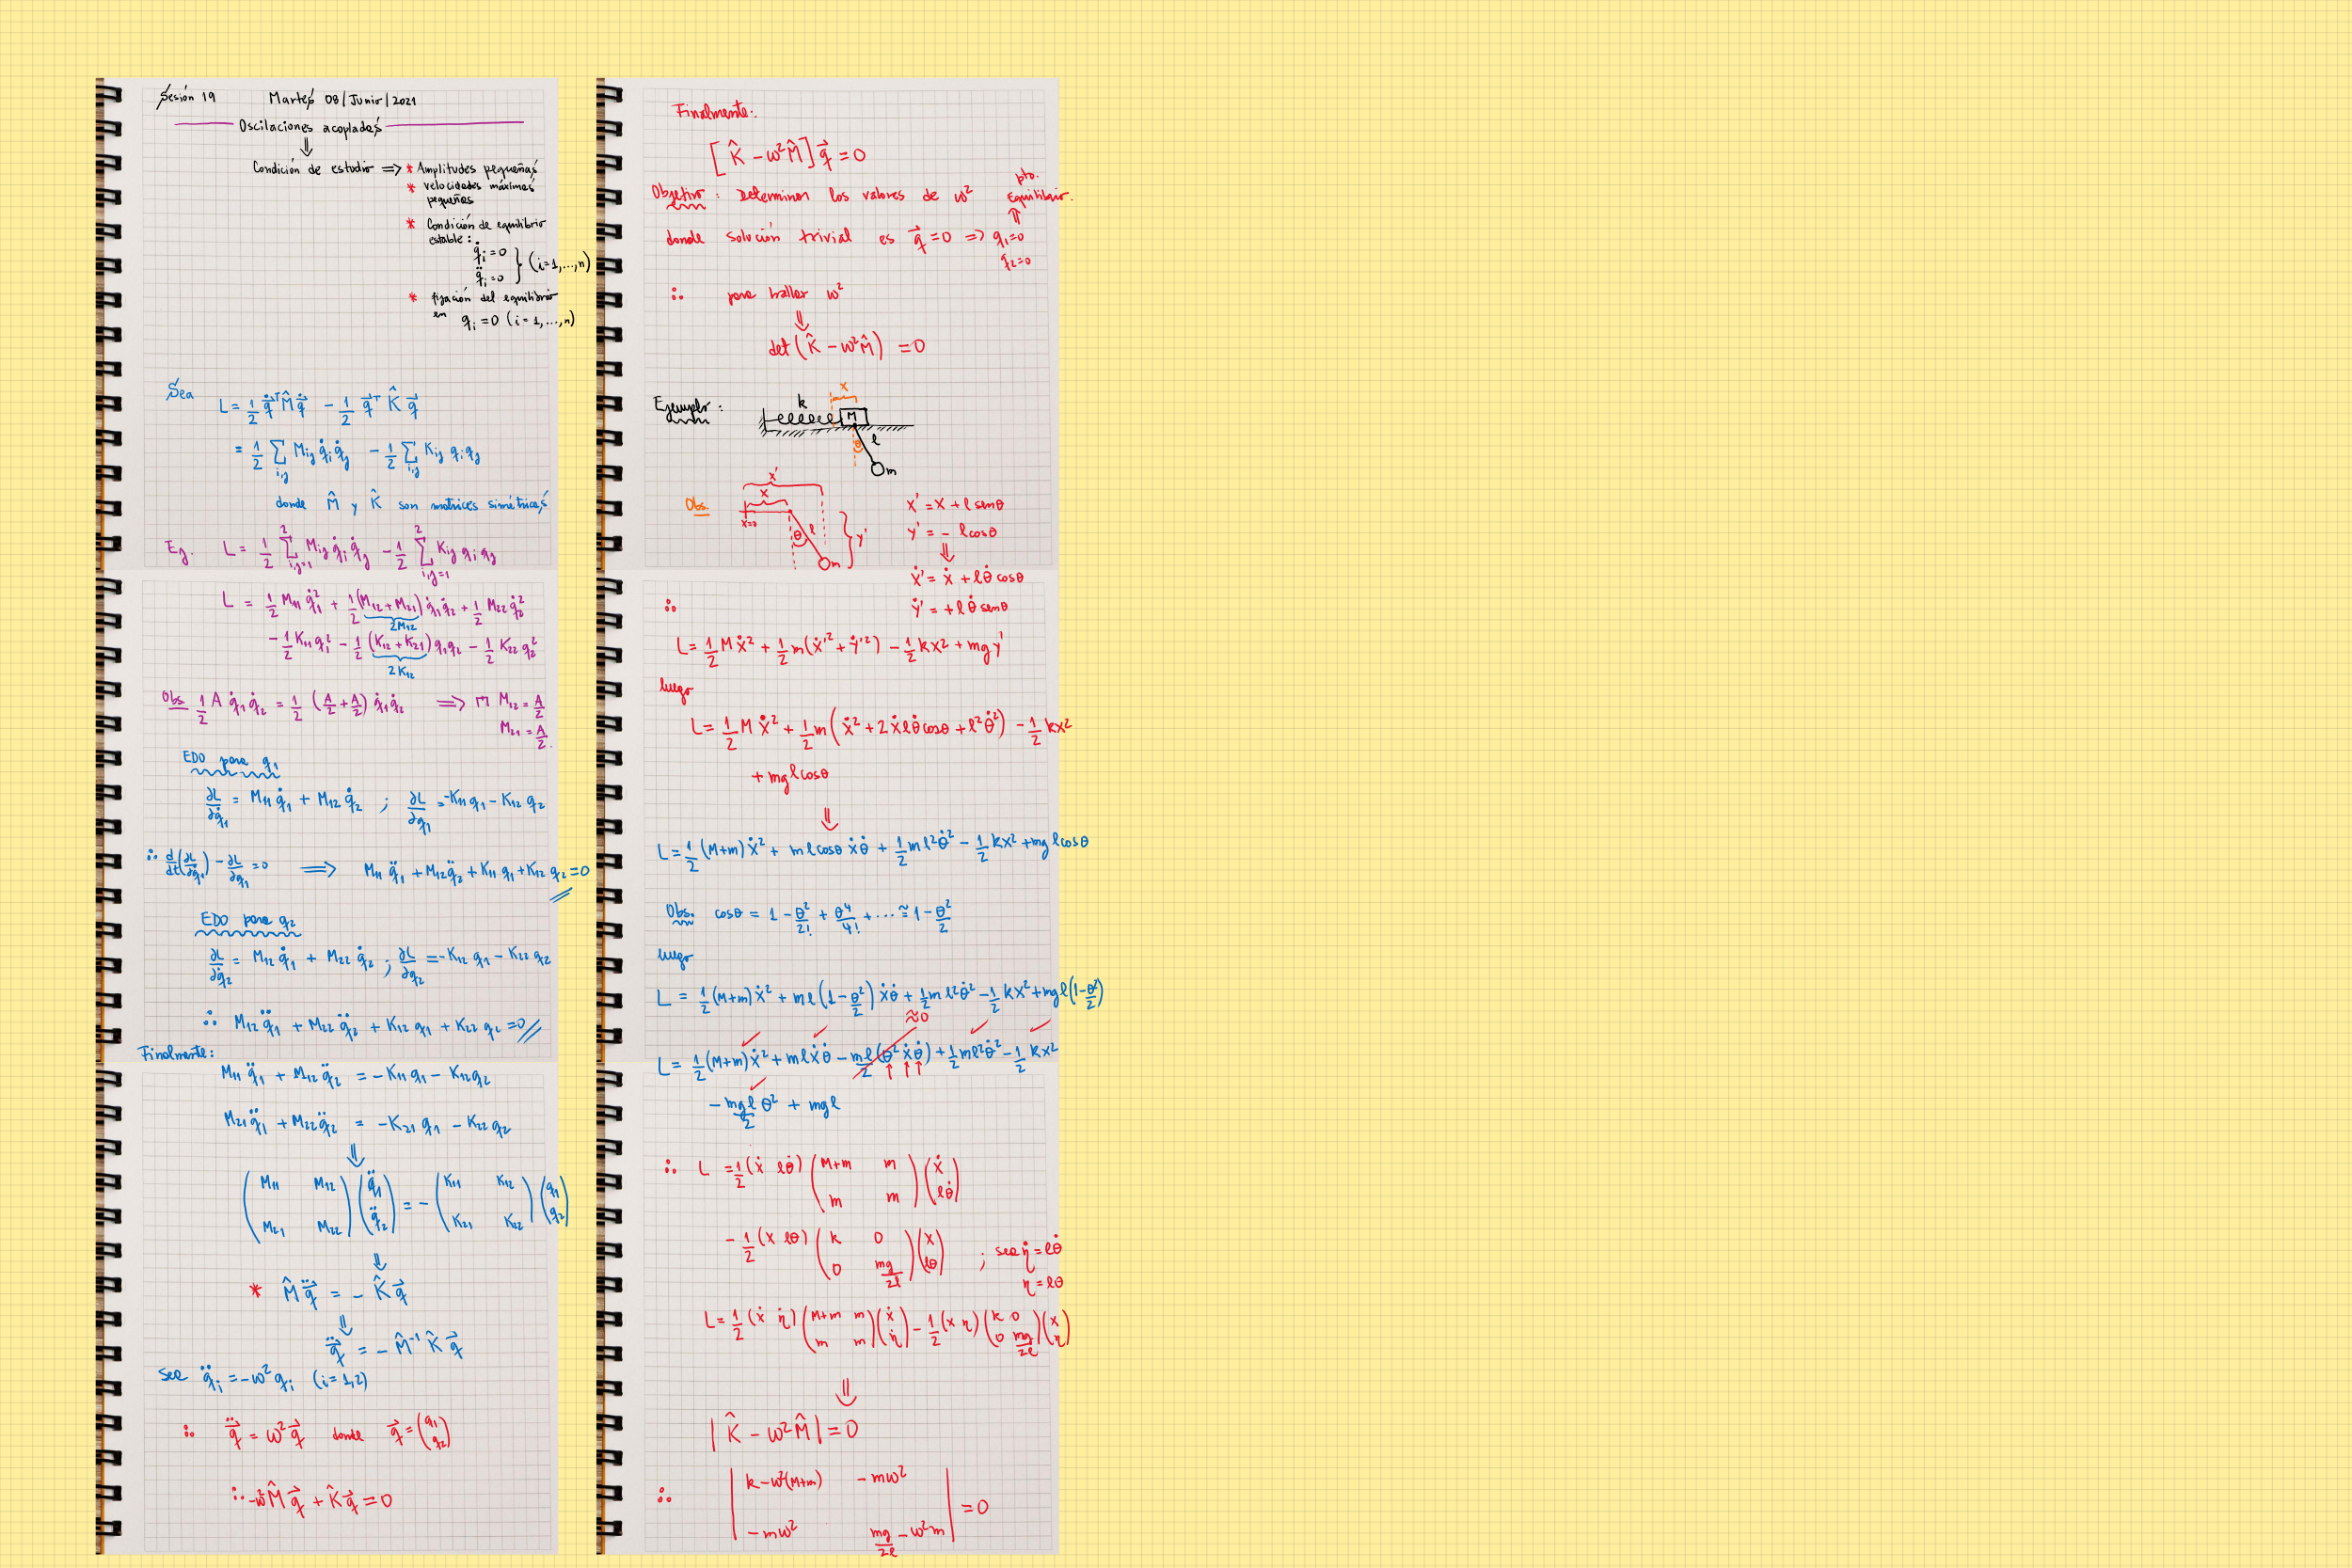 Sesión 19 Martes 08/Junio/2021
Oscilaciones acopladas
⇓
Condición de estudio ⇒ * Amplitudes pequeñas
* velocidades máximas
pequeñas
* Condición de equilibrio
estable:
q̇ᵢ = 0
q̈ᵢ = 0 } (i=1,...,n)
* fijación del equilibrio
en qᵢ = 0 (i = 1,...,n)
Sea L = 1/2 q⃗̇ᵀ M̂ q⃗̇ - 1/2 q⃗ᵀ K̂ q⃗
= 1/2 Σ_{i,j} M_ij q̇ᵢ q̇ⱼ - 1/2 Σ_{i,j} K_ij qᵢ qⱼ
donde M̂ y K̂ son matrices simétricas
Ej. L = 1/2 Σ_{i,j=1}^{2} M_ij q̇ᵢ q̇ⱼ - 1/2 Σ_{i,j=1}^{2} K_ij qᵢ qⱼ
L = 1/2 M₁₁ q̇₁² + 1/2 (M₁₂ + M₂₁) q̇₁ q̇₂ + 1/2 M₂₂ q̇₂²
2M₁₂
- 1/2 K₁₁ q₁² - 1/2 (K₁₂ + K₂₁) q₁ q₂ - 1/2 K₂₂ q₂²
2K₁₂
Obs 1/2 A q̇₁ q̇₂ = 1/2 (A/2 + A/2) q̇₁ q̇₂ ⇒ M₁₂ = A/2
M₂₁ = A/2.
EDO para q₁
∂L/∂q̇₁ = M₁₁ q̇₁ + M₁₂ q̇₂ ; ∂L/∂q₁ = -K₁₁ q₁ - K₁₂ q₂
∴ d/dt(∂L/∂q̇₁) - ∂L/∂q₁ = 0 ⇒ M₁₁ q̈₁ + M₁₂ q̈₂ + K₁₁ q₁ + K₁₂ q₂ = 0
EDO para q₂
∂L/∂q̇₂ = M₁₂ q̇₁ + M₂₂ q̇₂ ; ∂L/∂q₂ = -K₁₂ q₁ - K₂₂ q₂
∴ M₁₂ q̈₁ + M₂₂ q̈₂ + K₁₂ q₁ + K₂₂ q₂ = 0
Finalmente:
M₁₁ q̈₁ + M₁₂ q̈₂ = -K₁₁ q₁ - K₁₂ q₂
M₂₁ q̈₁ + M₂₂ q̈₂ = -K₂₁ q₁ - K₂₂ q₂
⇓
(M₁₁ M₁₂ ; M₂₁ M₂₂)(q̈₁ ; q̈₂) = -(K₁₁ K₁₂ ; K₂₁ K₂₂)(q₁ ; q₂)
⇓
* M̂ q⃗̈ = - K̂ q⃗
⇓
q⃗̈ = - M̂⁻¹ K̂ q⃗
sea q̈ᵢ = -ω² qᵢ (i = 1,2)
∴ q⃗̈ = ω² q⃗ donde q⃗ = (q₁ ; q₂)
∴ -ω² M̂ q⃗ + K̂ q⃗ = 0
Finalmente:
[K̂ - ω² M̂] q⃗ = 0
pto.
Objetivo: Determinar los valores de ω² Equilibrio.
⇑
donde solución trivial es q⃗ = 0 ⇒ q₁ = 0
q₂ = 0
∴ para hallar ω²
⇓
det (K̂ - ω² M̂) = 0
Ejemplo: k x M
θ l
m
Obs. x' x x=0 θ l y' m
x' = x + l senθ
y' = - l cosθ
⇓
ẋ' = ẋ + l θ̇ cosθ
∴ ẏ' = + l θ̇ senθ
L = 1/2 M ẋ² + 1/2 m (ẋ'² + ẏ'²) - 1/2 k x² + m g y'
luego
L = 1/2 M ẋ² + 1/2 m (ẋ² + 2 ẋ l θ̇ cosθ + l² θ̇²) - 1/2 k x²
+ m g l cosθ
⇓
L = 1/2 (M+m) ẋ² + m l cosθ ẋ θ̇ + 1/2 m l² θ̇² - 1/2 k x² + m g l cosθ
Obs. cosθ = 1 - θ²/2! + θ⁴/4! + ... ≈ 1 - θ²/2
luego
L = 1/2 (M+m) ẋ² + m l (1 - θ²/2) ẋ θ̇ + 1/2 m l² θ̇² - 1/2 k x² + m g l (1 - θ²/2)
≈0
L = 1/2 (M+m) ẋ² + m l ẋ θ̇ - m l/2 (θ² ẋ θ̇) + 1/2 m l² θ̇² - 1/2 k x²
- m g l/2 θ² + m g l
∴ L = 1/2 (ẋ lθ̇)(M+m m ; m m)(ẋ ; lθ̇)
- 1/2 (x lθ)(k 0 ; 0 mg/2l)(x ; lθ) ; sea η̇ = lθ̇
η = lθ
L = 1/2 (ẋ η̇)(M+m m ; m m)(ẋ ; η̇) - 1/2 (x η)(k 0 ; 0 mg/2l)(x ; η)
⇓
|K̂ - ω² M̂| = 0
∴ | k - ω²(M+m) - mω² ; - mω² mg/2l - ω² m | = 0